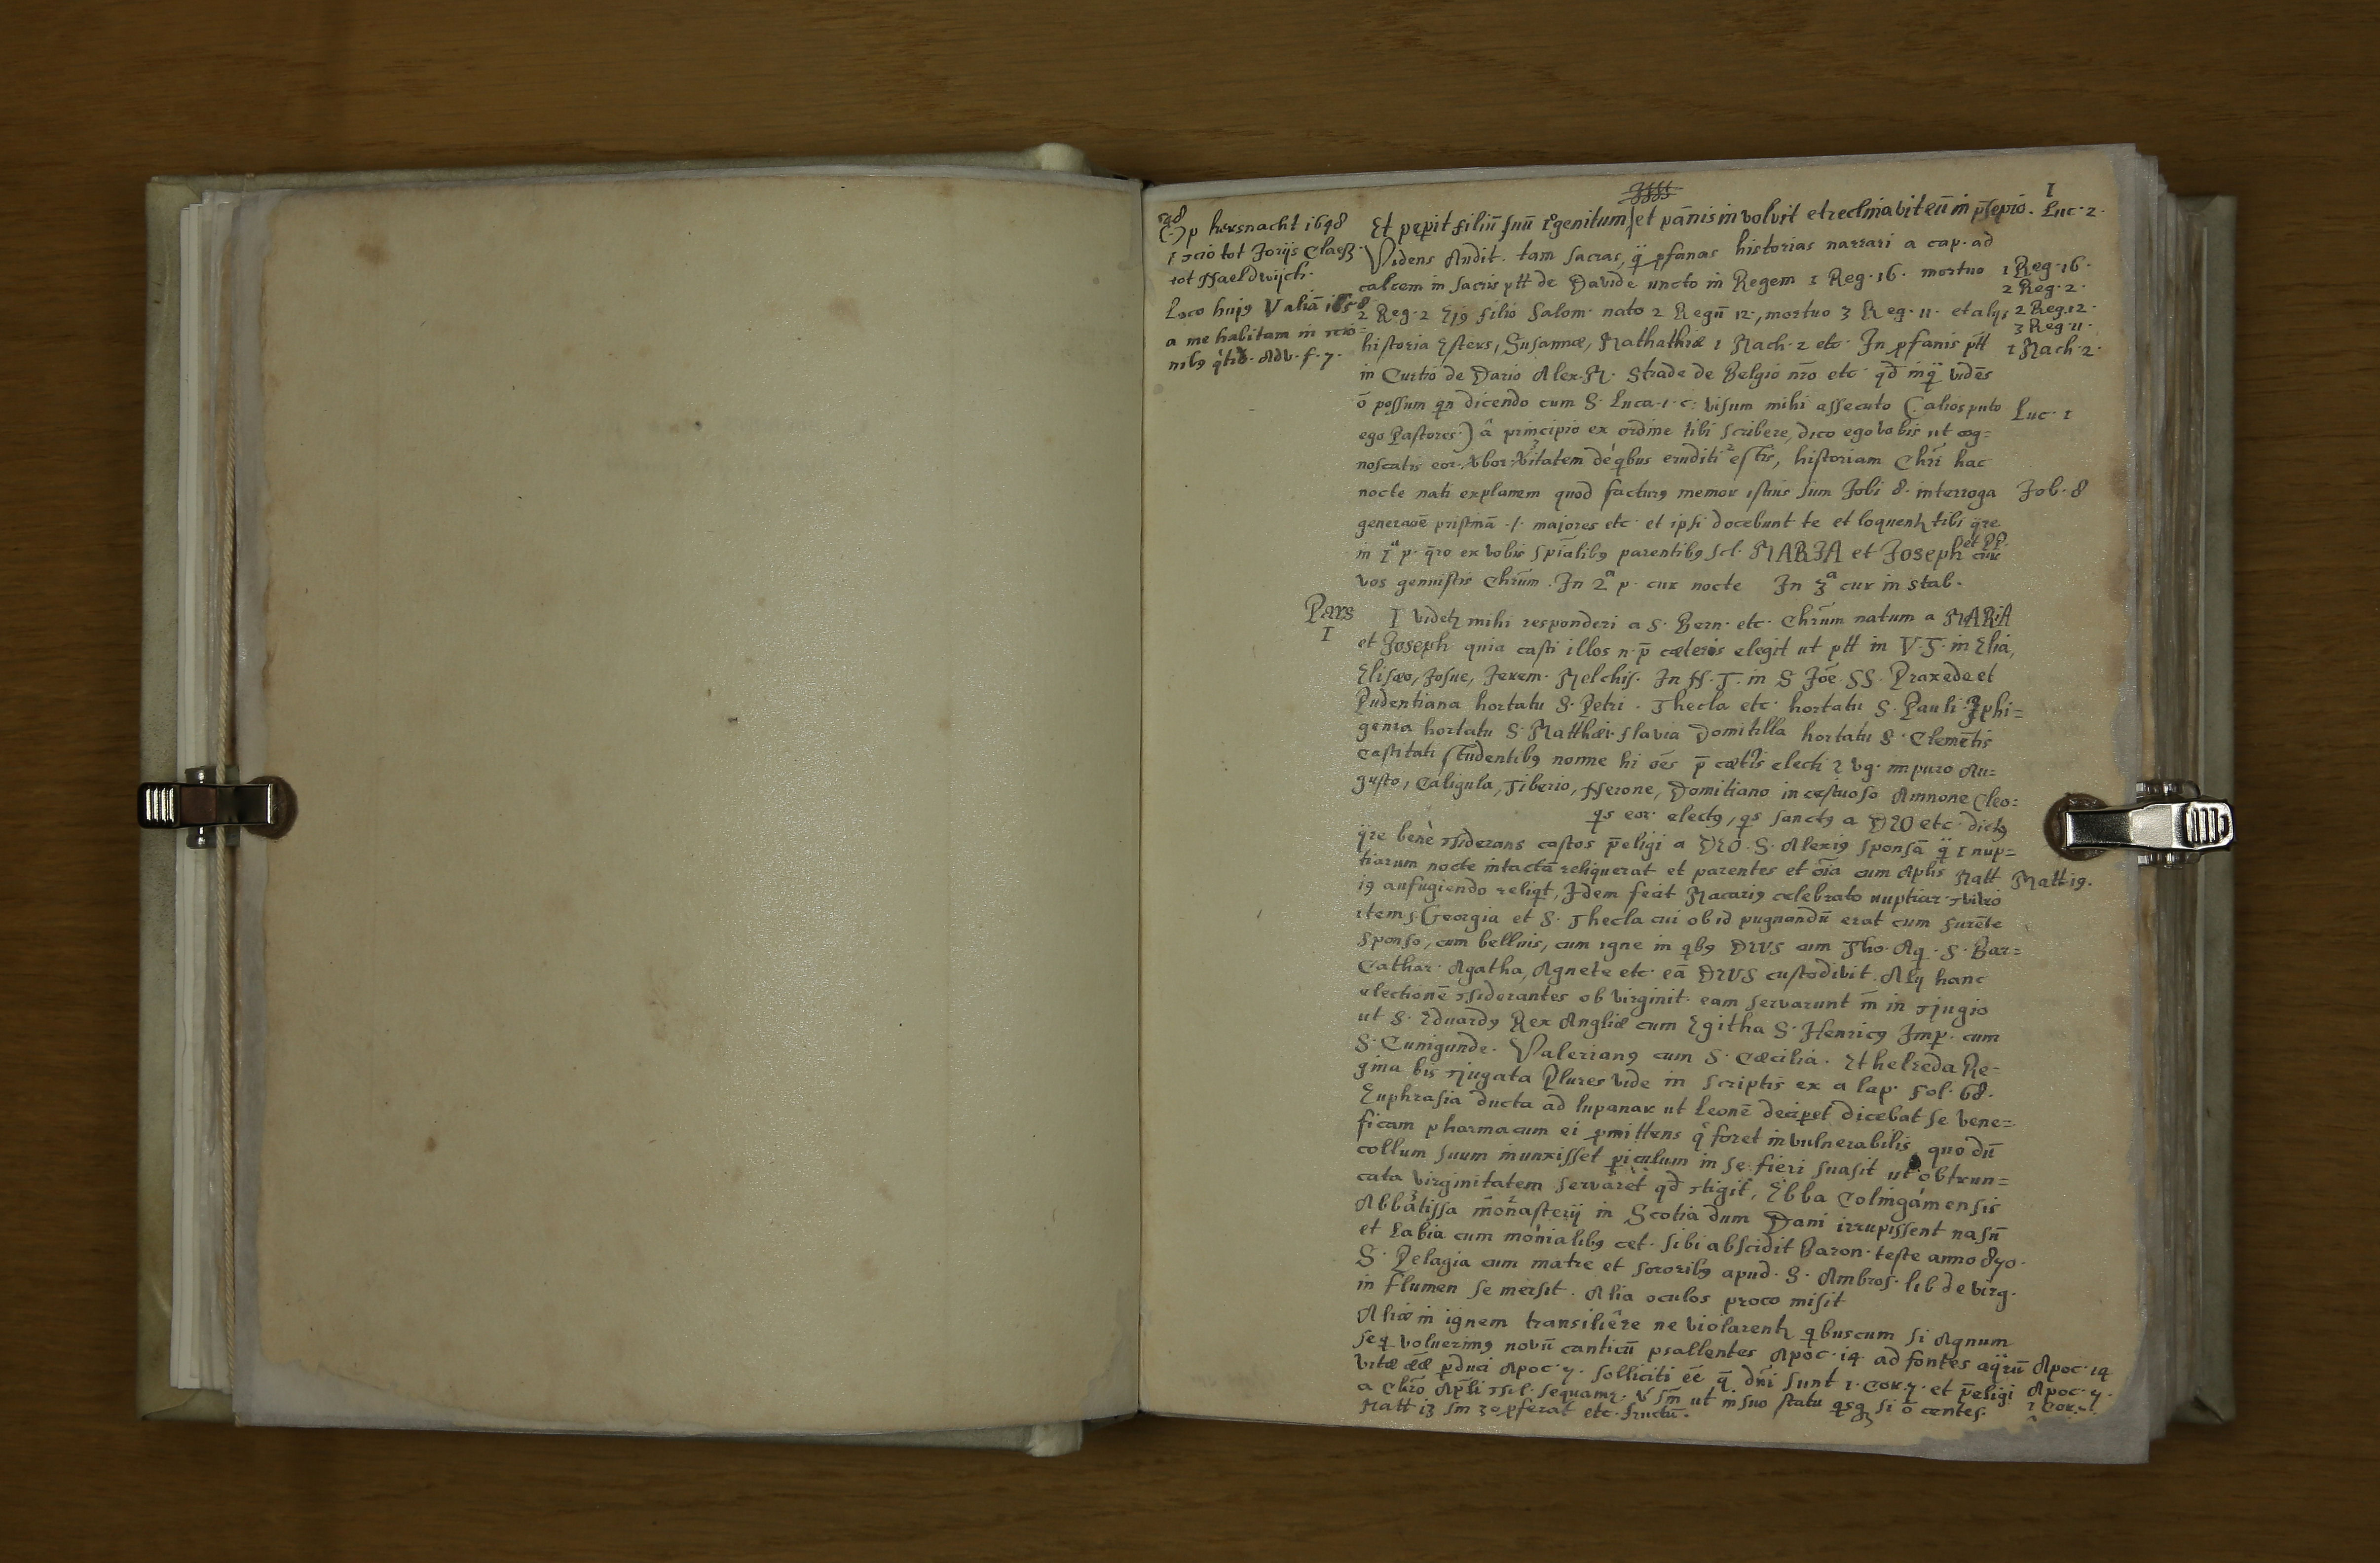 1
p kersnacht 1648
tot Jorijs Claesz
tot Naeldwijch.
Loco huj9 Valiā
a me habitam in
nib9 Adv. f. 7.
Et peperit filiū suū genitum et pānis involvit et reclinavit eū in p̄sepio. Luc. 2.
Videns Audit. tam sacras, q̄ pfanas historias narrari a cap. ad
calcem in sacris ptt de Davide uncto in Regem 1 Reg. 16. mortuo 1 Reg. 16.
2 Reg. 2.
2 Reg. 2 Ej9 filio Salom. nato 2 Regū 12., mortuo 3 Reg. 11. et alys 2 Reg. 12.
3 Reg. 11.
historia Esters, Susannæ, Mathathiæ 1 Mach. 2 etc. In pfanis ptt 1 Mach. 2.
in Curtio de Dario Alex. M. Strade de Belgio nr̄o etc. qd inq̄ vidēs
ō possum qn dicendo cum S. Luca. 1. c: visum mihi assecuto (alios puto Luc. 1
ego Pastores.) â principio ex ordine tibi scribere, dico ego vobis ut cog=
noscatis eor. vbor. vitatem de qbus eruditi estis, historiam Chri hac
nocte nati explanem quod factur9 memor istius sum Jobi 8. interroga Job. 8
generaōe pristinā .1. majores etc. et ipsi docebunt te et loquent tibi q̄re
in 1ª p. q̄ro ex vobis spialib9 parentib9 scl. MARIA et Joseph et PP. cur
vos genuistis Chrūm. In 2ª p. cur nocte In 3ª cur in stab.
Pars
I
I videt mihi responderi a S. Bern. etc. Chrūm natum a MARIA
et Joseph quia casti illos n. p̄ cæteris elegit ut ptt in V. T. in Elia,
Elisæo, Josue, Jerem. Melchis. In N. T. in S Joē. SS. Praxede et
Pudentiana hortatu S. Petri. Thecla etc. hortatu S. Pauli. Iphi=
genia hortatu S. Matthæi. flavia Domitilla hortatu S. Clemētis
castitati studentib9 nonne hi oēs p̄ cætis electi vg. impuro Au=
gusto, Caligula, Tiberio, Nerone, Domitiano incestuoso Amnone Cleo:
qs eor. elect9, qs sanct9 a DEO etc. dict9
q̄re benè siderans castos p̄eligi a DEO. S. Alexi9 sponsā q̄ 1 nup=
tiarum nocte intactā reliquerat et parentes et oīa cum Aplis Matt Matt 19.
19 aufugiendo reliqt, Idem fecit Macari9 celebrato nuptiar.
item S Georgia et S. Thecla cui ob id pugnandū erat cum furēte
sponso, cum belluis, cum igne in qb9 DEUS cum Tho. Aq. S. Bar=
Cathar. Agatha, Agnete etc. eā DEUS custodivit. Alij hanc
electionē siderantes ob virginit. eam servarunt in jugio
ut S. Eduard9 Rex Angliæ cum Egitha S. Henric9 Imp. cum
S. Cunigunde. Valerian9 cum S. Cæcilia. Ethelreda Re=
gina bis jugata Plures vide in scriptis ex a lap. fol. 68.
Euphrasia ducta ad lupanar ut Leonē decipet dicebat se vene=
ficam pharmacum ei pmittens q foret invulnerabilis, quo dū
collum suum inunxisset piculum in se fieri suasit ut obtrun=
cata virginitatem servaret qd tigit, Ebba Colingamensis
Abbatissa monasterij in Scotia dum Dani irrupissent nasū
et Labia cum mōnialib9 cet. sibi abscidit Baron. teste anno 870.
S. Pelagia cum matre et sororib9 apud. S. Ambros. lib de virg.
in flumen se mersit. Alia oculos proco misit
Aliæ in ignem transiliêre ne violarent qbuscum si Agnum
seq volverim9 novū canticū psallentes Apoc. 14 ad fontes aqrū Apoc. 14
vitæ pduci Apoc. 7. solliciti eē q̄ dni sunt 1. Cor. 7. et p̄eligi Apoc. 7.
a Chr̄o Apli sequamr. ut in suo statu qsq si ō centes. 1 Cor. 7
Matt 13 30 pferat etc. fructū.